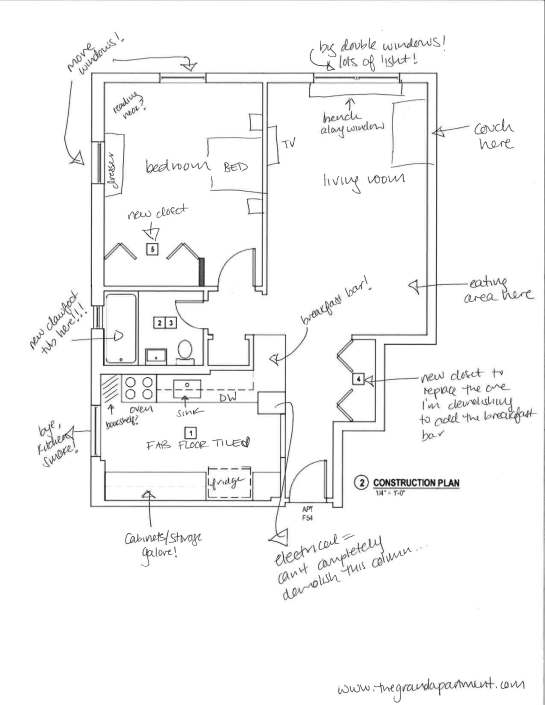 more
windows!
big double windows!
lots of light!
reading
nook?
bench
along window
TV
couch
here
dresser
bedroom
BED
living room
new closet
5
eating
area here
new clawfoot
tub here!!!
2 3
breakfast bar!
4
new closet to
replace the one
I'm demolishing
to add the breakfast
bar
oven
sink
DW
bookshelf?
bye,
kitchen
smoke!
1
FAB FLOOR TILE
fridge
2 CONSTRUCTION PLAN
1/4" = 1'-0"
APT
F54
Cabinets/storage
galore!
electrical =
can't completely
demolish this column...
www.thegrandapartment.com